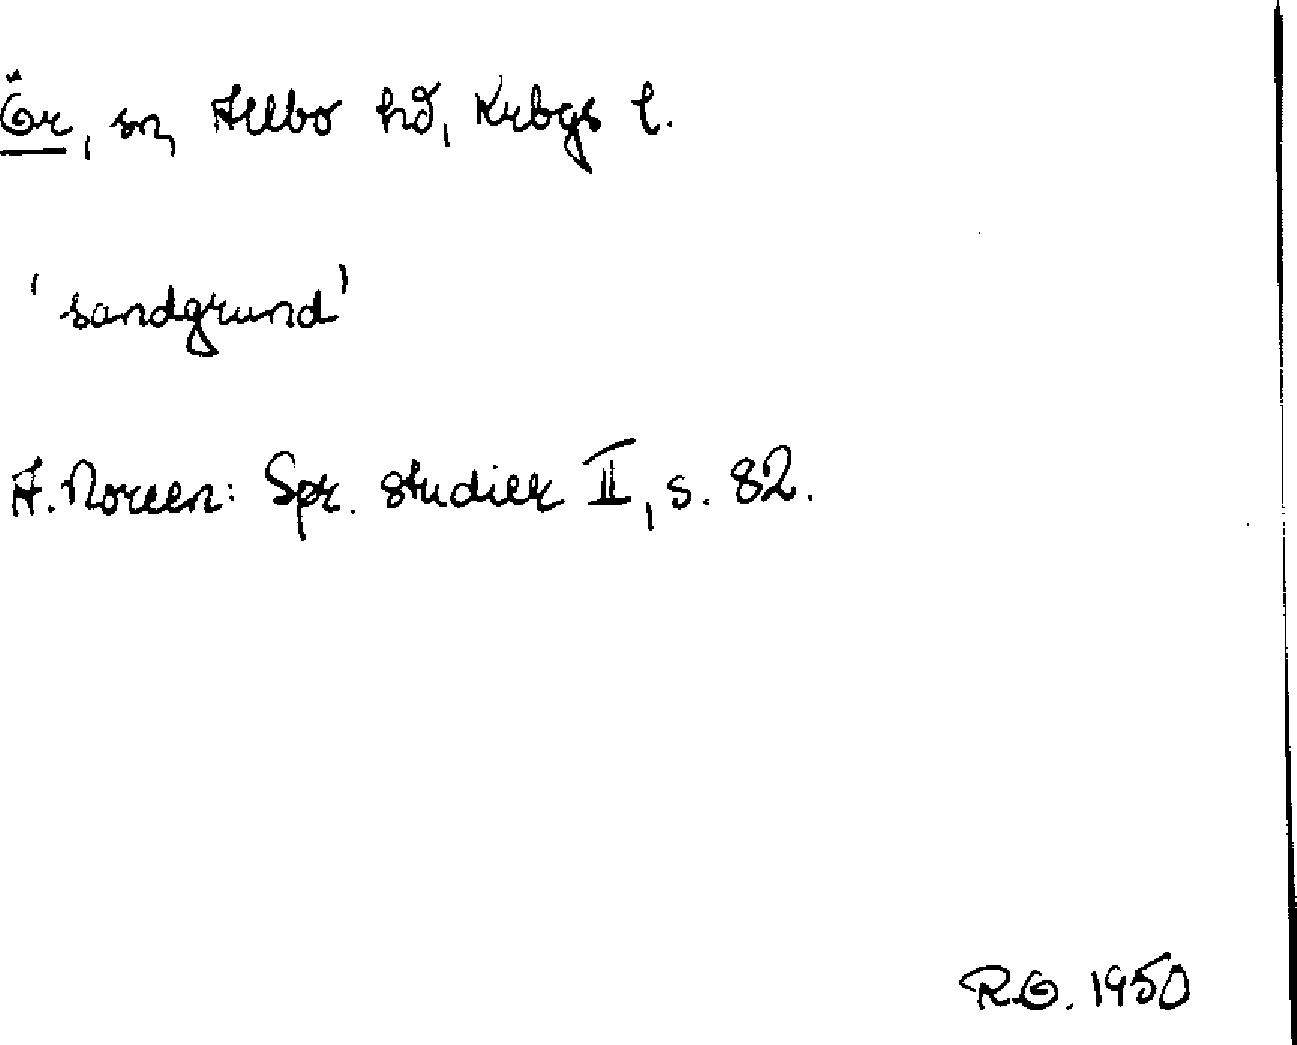 Ör, sn, Allbo hd, Krbgs l.
'sandgrund'
A. Noreen: Spr. studier II, s. 82.
R.O. 1950